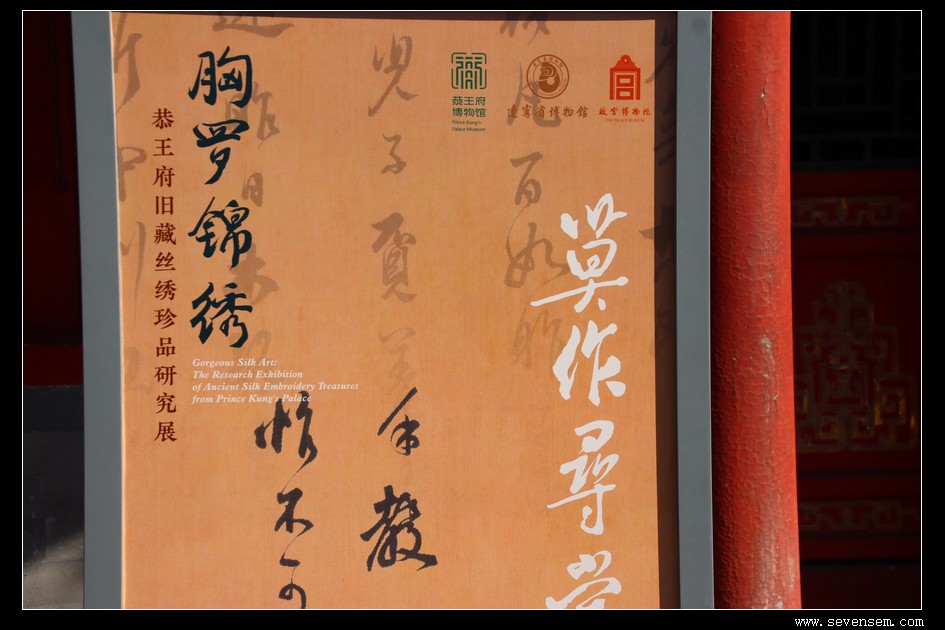 恭王府
博物馆
Prince Kung's
Palace Museum
辽宁省博物馆
故宫博物院
THE PALACE MUSEUM
胸罗锦绣
恭王府旧藏丝绣珍品研究展
Gorgeous Silk Art:
The Research Exhibition
of Ancient Silk Embroidery Treasures
from Prince Kung's Palace
莫作尋常
百如
昨日
兒子
不可
教
www.sevensem.com